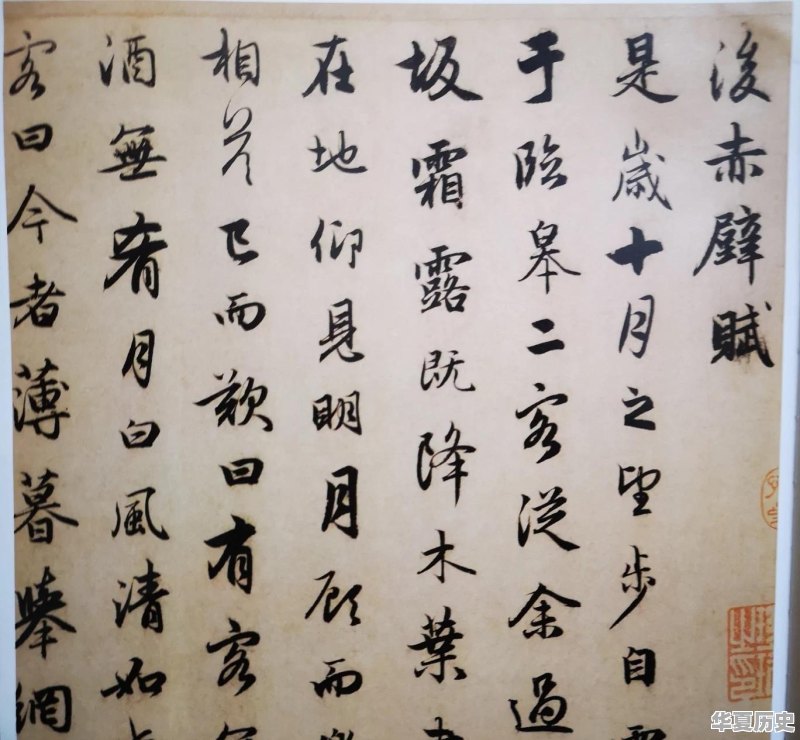 後赤壁賦
是歲十月之望步自
于臨皋二客從余過
坂霜露既降木葉
在地仰見明月顧而
相答已而歎曰有客
酒無肴月白風清如
客曰今者薄暮舉網
华夏历史